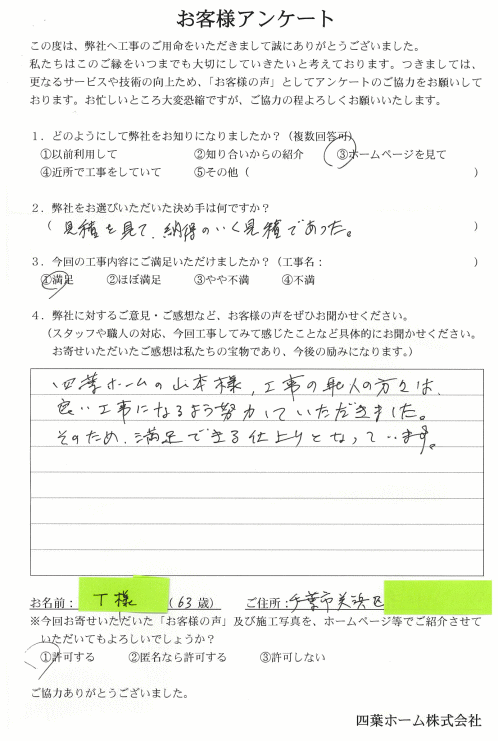 お客様アンケート
この度は、弊社へ工事のご用命をいただきまして誠にありがとうございました。
私たちはこのご縁をいつまでも大切にしていきたいと考えております。つきましては、
更なるサービスや技術の向上ため、「お客様の声」としてアンケートのご協力をお願いして
おります。お忙しいところ大変恐縮ですが、ご協力の程よろしくお願いいたします。
1．どのようにして弊社をお知りになりましたか？（複数回答可）
①以前利用して ②知り合いからの紹介 ③ホームページを見て
④近所で工事をしていて ⑤その他（ ）
2．弊社をお選びいただいた決め手は何ですか？
（ 見積を見て、納得のいく見積であった。 ）
3．今回の工事内容にご満足いただけましたか？（工事名： ）
①満足 ②ほぼ満足 ③やや不満 ④不満
4．弊社に対するご意見・ご感想など、お客様の声をぜひお聞かせください。
（スタッフや職人の対応、今回工事してみて感じたことなど具体的にお聞かせください。
お寄せいただいたご感想は私たちの宝物であり、今後の励みになります。）
四葉ホームの山本様、工事の職人の方々は、
良い工事になるよう努力していただきました。
そのため、満足できる仕上りとなっています。
お名前： T様 （63歳） ご住所：千葉市美浜区
※今回お寄せいただいた「お客様の声」及び施工写真を、ホームページ等でご紹介させて
いただいてもよろしいでしょうか？
①許可する ②匿名なら許可する ③許可しない
ご協力ありがとうございました。
四葉ホーム株式会社